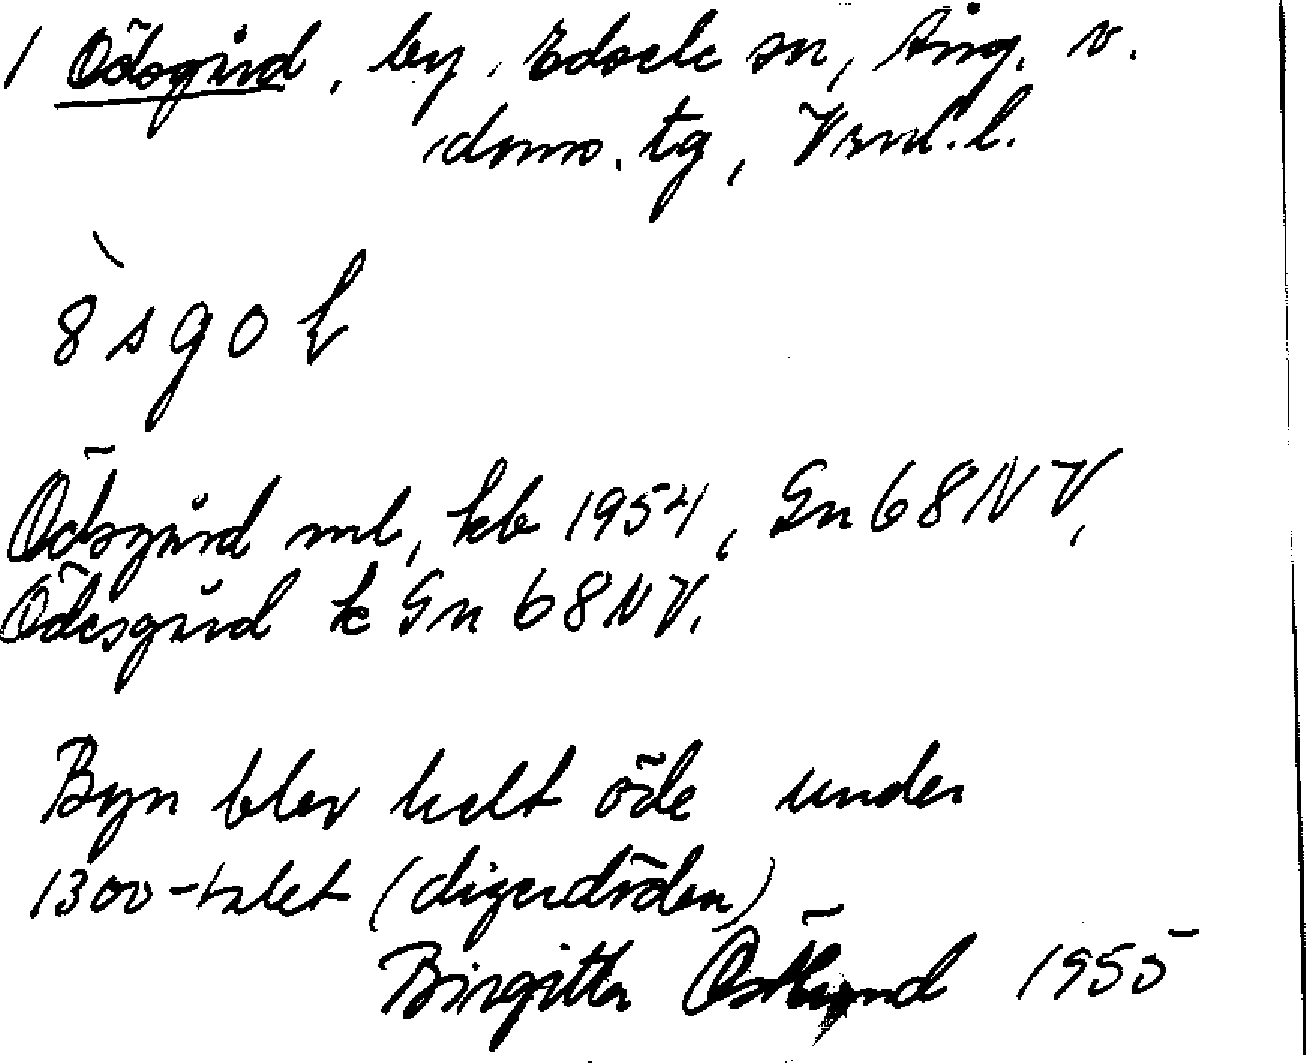 1 Ödsgård, by, Edsele sn, Ång. v.
doms. tg, Vrnl. l.
8sgoł
Ödsgård ml, kb 1954, Gn 68NV,
Ödesgård k Gn 68NV.
Byn blev helt öde under
1300-talet (digerdöden)
Birgitta Östlund 1955